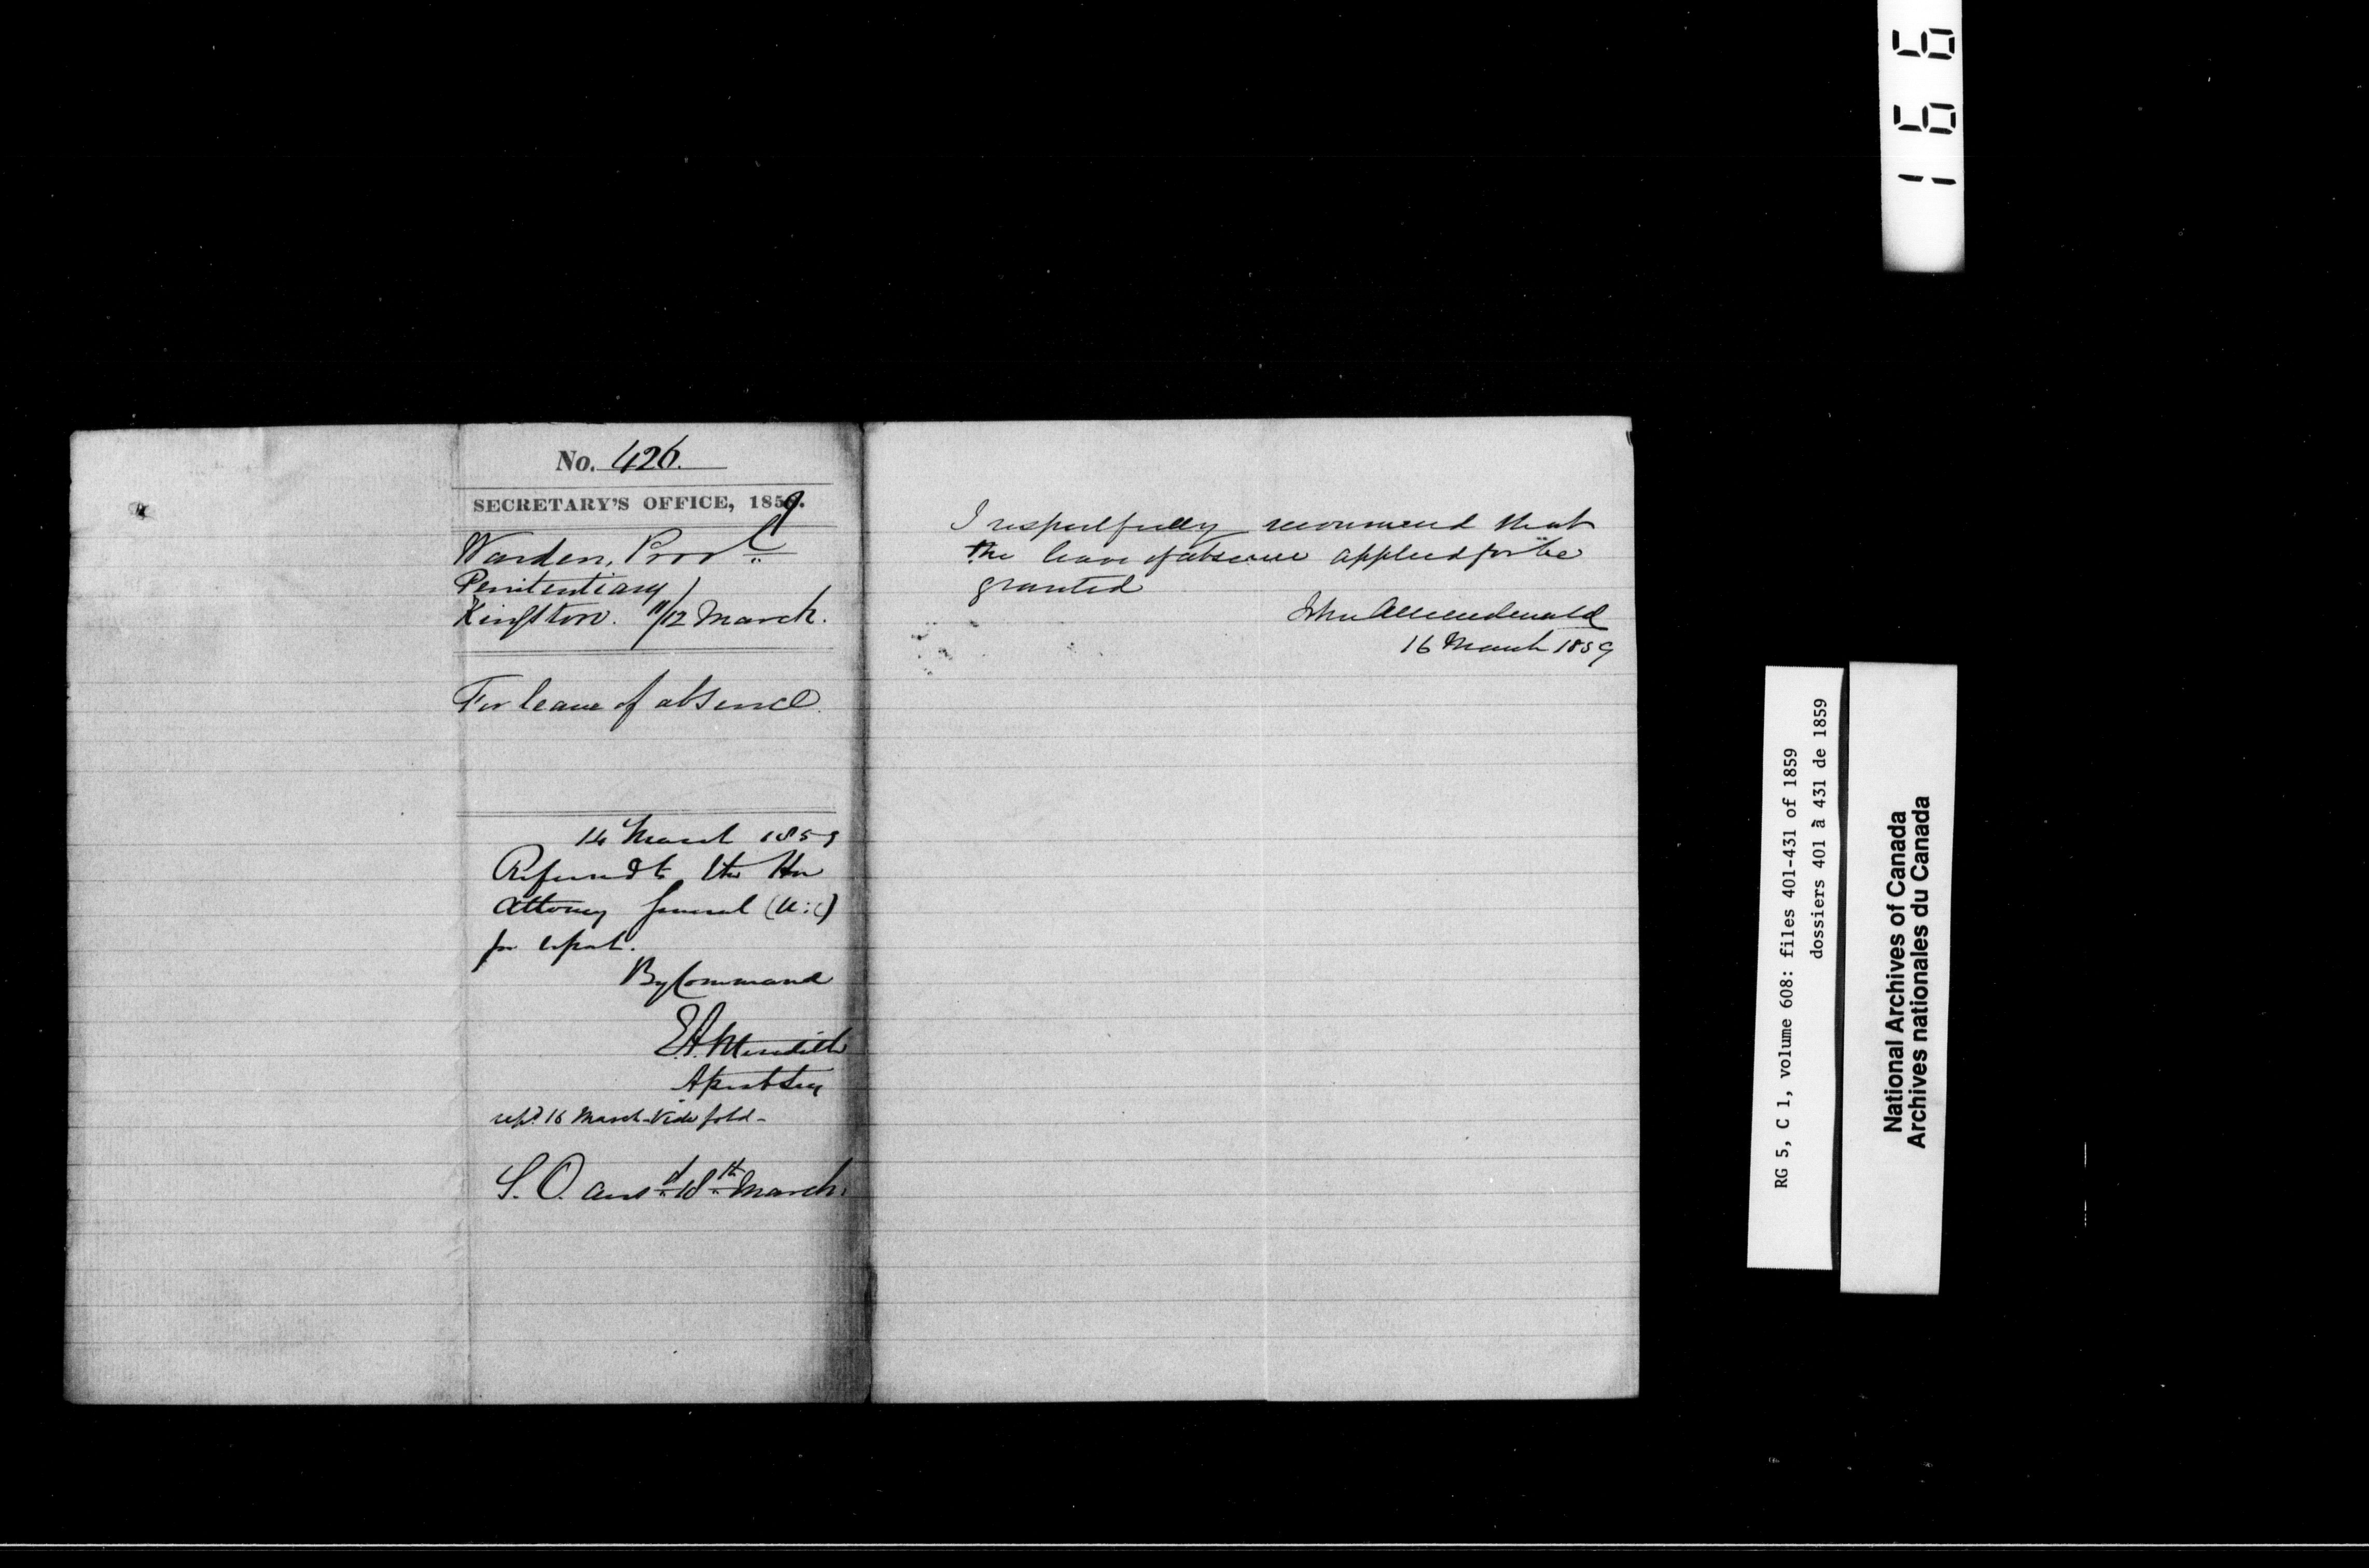 No. 426.
SECRETARY'S OFFICE, 1859.
Warden, Provl
Penitentiary
Kingston. 11/12 March.
For leave of absence.
14 March 1859
Referred to the Hon
Attorney General (U:C)
for report.
By Command
E.A. Meredith
Asst Secy
repd. 16 March - Vide fold -
S.O. ansd 18th March.
I respectfully recommend that
the leave of absence applied for be
granted
John A Macdonald
16 March 1859
166
RG 5, C 1, volume 608: files 401-431 of 1859
dossiers 401 à 431 de 1859
National Archives of Canada
Archives nationales du Canada